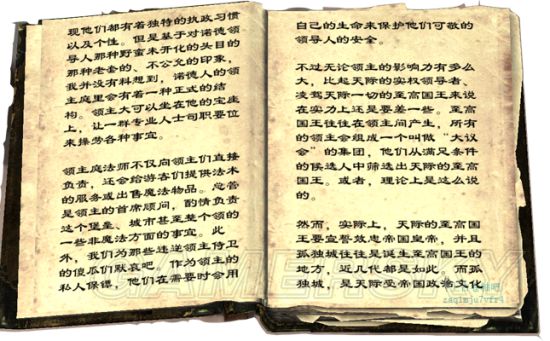 现他们都有着独特的执政习惯
以及个性。但是基于对诺德领
导人那种野蛮未开化的头目的
那种老套的、不公允的印象，
我并没有料想到，诺德人的领
主庭里会有着一种正式的结
构。领主大可以坐在他的宝座
上，让一群专业人士司职要位
来操劳各种事宜。
领主庭法师不仅向领主们直接
负责，还会给游客们提供法术
的服务或出售魔法物品。总管
是领主的首席顾问，酌情负责
这个堡垒、城市甚至整个领的
一些非魔法方面的事宜。此
外，我们为那些违逆领主侍卫
的傻瓜们默哀吧 作为领主的
私人保镖，他们在需要时会用
自己的生命来保护他们可敬的
领导人的安全。
不过无论领主的影响力有多么
大，比起天际的实权领导者、
凌驾天际一切的至高国王来说
在实力上还是要差一些。至高
国王往往在领主间产生，所有
的领主会组成一个叫做“大议
会”的集团，他们从满足条件
的候选人中筛选出天际的至高
国王。或者，理论上是这么说
的。
然而，实际上，天际的至高国
王要宣誓效忠帝国皇帝，并且
孤独城往往是诞生至高国王的
地方，近几代都是如此 而孤
独城，是天际受帝国政治文化
GAMERSKY
zaqimju7yfr4